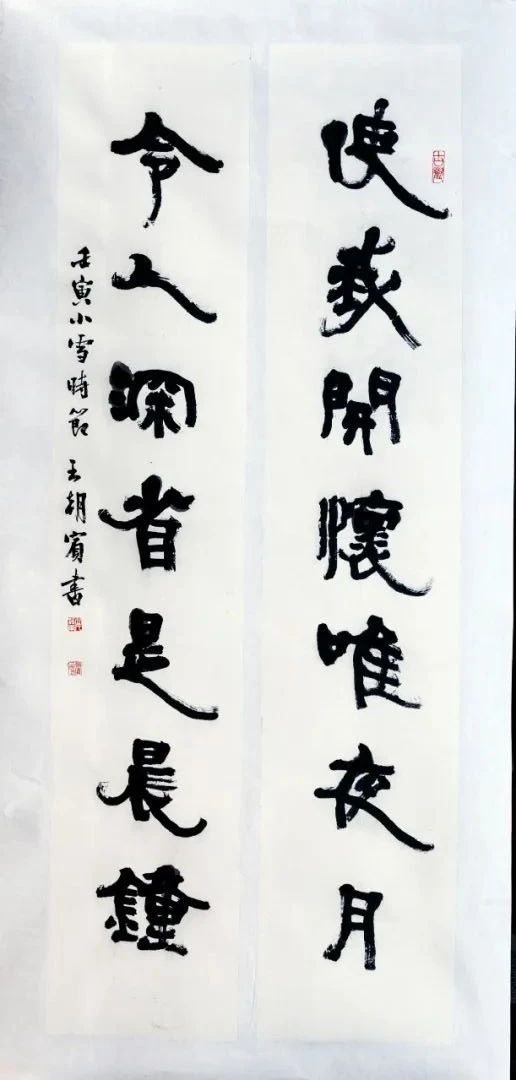 使我開懷唯夜月
令人深省是晨鐘
壬寅小雪時節 王朝賓書